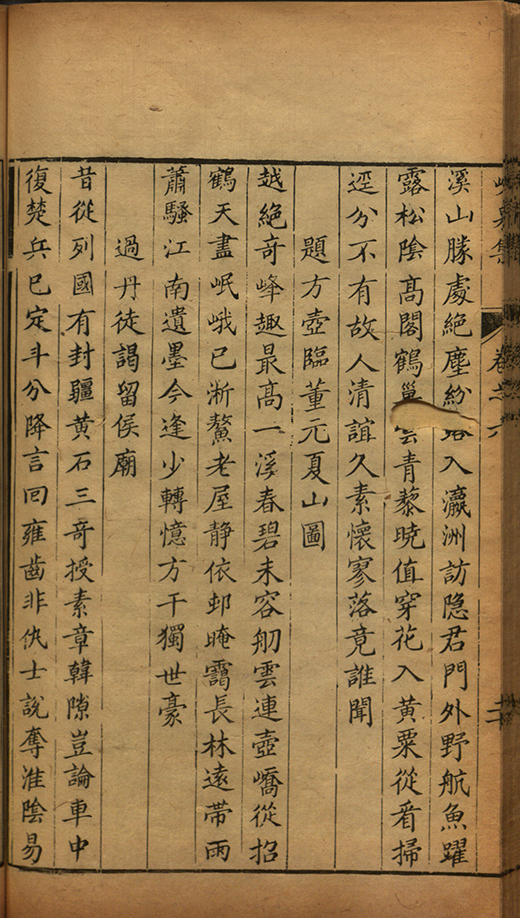 卷之六
溪山勝處絕塵紛路入瀛洲訪隐君門外野航魚躍
露松陰高閣鶴巢雲青藜曉值穿花入黃粟從看掃
逕分不有故人清誼久素懷寥落竟誰聞
題方壺臨董元夏山圖
越絕奇峰趣最高一溪春碧未容舠雲連壺嶠從招
鶴天盡岷峨已漸鰲老屋静依邨晻靄長林遠帶雨
蕭騷江南遺墨今逢少轉憶方干獨世豪
過丹徒謁留侯廟
昔從列國有封疆黃石三竒授素章韓隙豈論車中
復楚兵已定斗分降言回雍齒非仇士說奪淮陰易